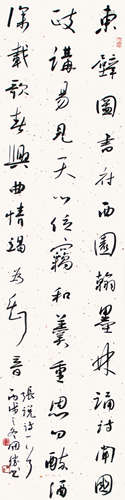 東壁圖書府西園翰墨林誦詩聞國
政講易見天心位竊和羹重恩叨醉酒
深載歌春興曲情竭為知音
張說詩一首